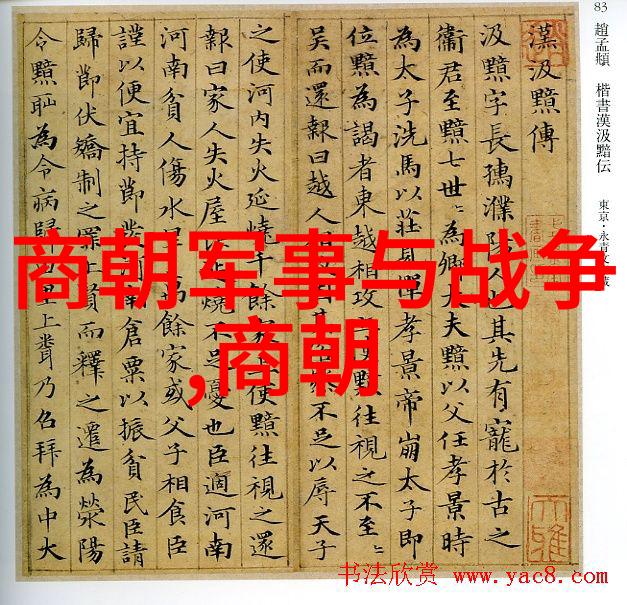 83
趙孟頫 楷書漢汲黯伝 東京・永青文 蔵
漢汲黯傳
汲黯字長孺濮陽人也其先有寵於古之
衛君至黯七世〻為卿大夫黯以父任孝景時
為太子洗馬以莊見憚孝景帝崩太子即
位黯為謁者東越相攻上使黯往視之不至〻
吳而還報曰越人相攻固其俗然不足以辱天子
之使河内失火延燒千餘家上使黯往視之還
報曰家人失火屋比延燒不足憂也臣過河南
河南貧人傷水旱萬餘家或父子相食臣
謹以便宜持節發河南倉粟以振貧民臣請
歸節伏矯制之罪上賢而釋之遷為滎陽
令黯恥為令病歸田里上聞乃召拜為中大
商朝军事与战争
,商朝
书法欣赏 www.yac8.com